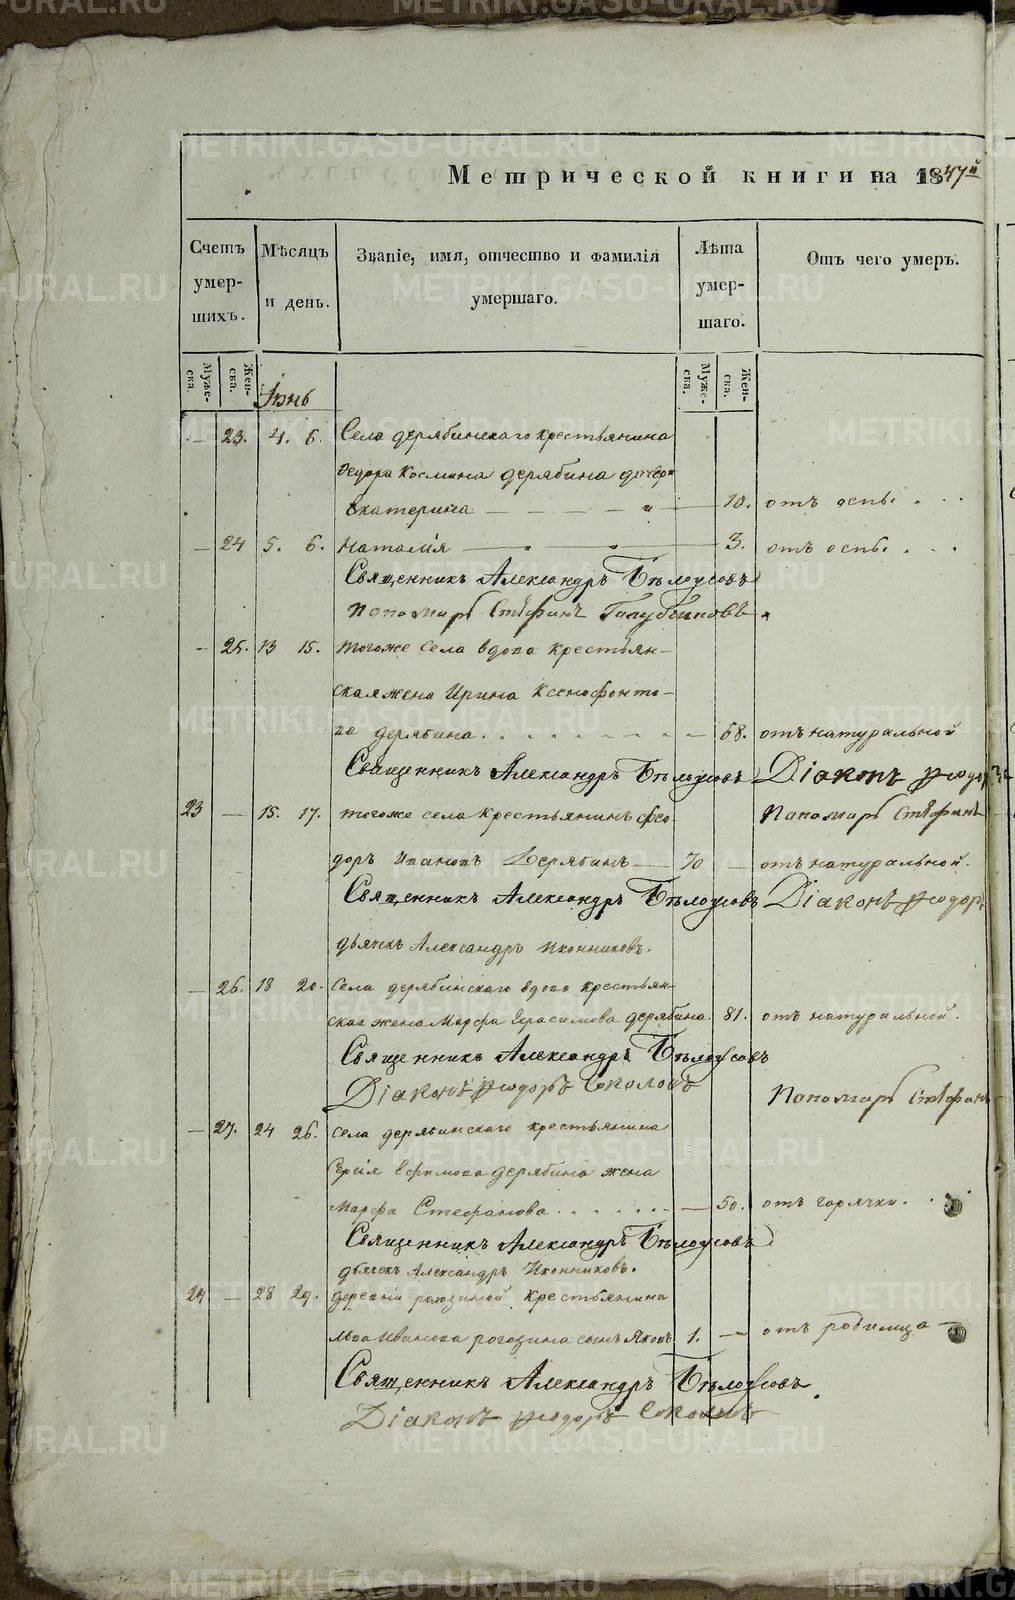 Метрической книги на 1847й
Счетъ умер-шихъ.
Мѣсяцъ и день.
Званіе, имя, отчество и фамилія умершаго.
Лѣта умер-шаго.
Отъ чего умеръ.
Муже-ска.
Жен-ска.
Муже-ска.
Жен-ска.
Іюнь
— 23. 4. 6. Села дерябинскаго крестьянина
Ѳедора Космина дерябина дочерь
Екатерина — — — — " — 10. отъ оспы . . .
— 24 5. 6. Наталія — 3. отъ оспы . . .
Священникъ Александръ Бѣлоусовъ
Пономарь Стефанъ Голубчиковъ.
— 25. 13 15. тогоже села вдова крестьян-
ская жена Ирина Ксенофонто-
ва дерябина. . . . . . — 68. отъ натуральной
Священникъ Александръ Бѣлоусовъ Діаконъ Ѳеодоръ
23 — 15. 17. тогоже села крестьянинъ Ѳео- Пономарь Стефанъ
доръ Ивановъ Дерябинъ — 70 — отъ натуральной.
Священникъ Александръ Бѣлоусовъ Діаконъ Ѳеодоръ
дьячекъ Александръ Иконниковъ.
— 26. 18 20. Села дерябинскаго вдова крестьян-
ская жена Марфа Герасимова дерябина. 81. отъ натуральной.
Священникъ Александръ Бѣлоусовъ
Діаконъ Ѳеодоръ Соколовъ Пономарь Стефанъ
— 27. 24 26. Села дерябинскаго крестьянина
Ефимова дерябина жена
Марфа Стефанова . . . . . . — 50. отъ горячки. .
Священникъ Александръ Бѣлоусовъ
дьячекъ Александръ Иконниковъ.
24 — 28 29. деревни рогозиной крестьянина
Льва Иванова рогозина сынъ Яковъ 1. — отъ родимца —
Священникъ Александръ Бѣлоусовъ.
Діаконъ Ѳеодоръ Соколовъ
METRIKI.GASO-URAL.RU